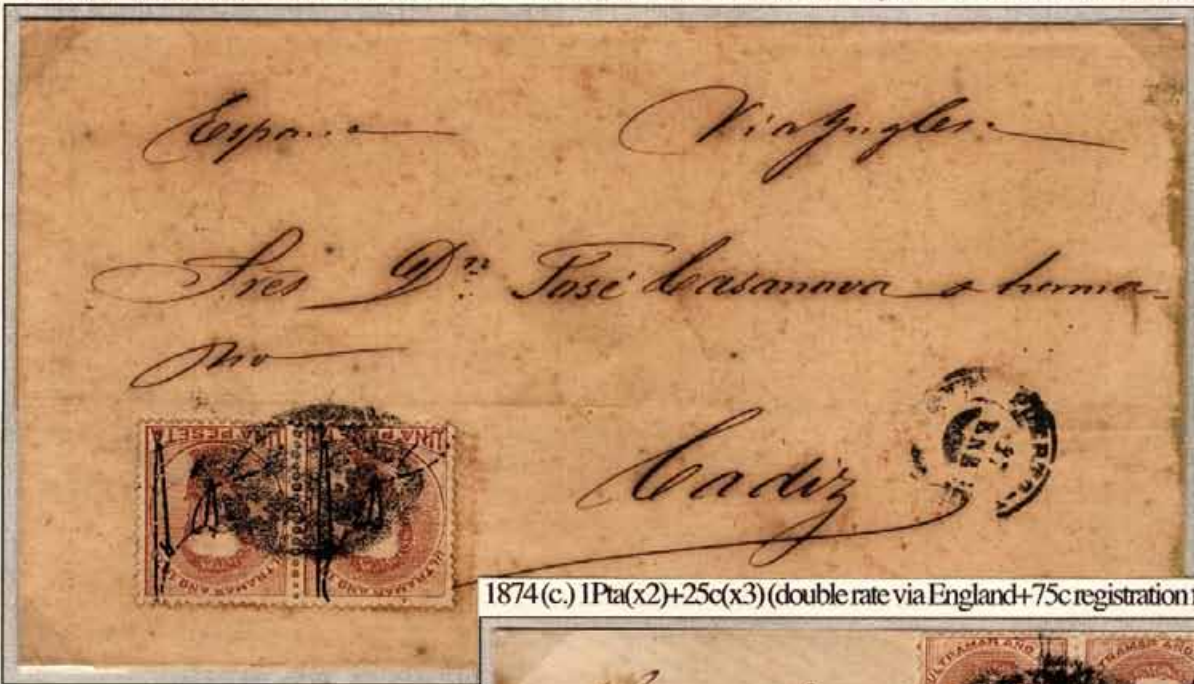 España Via Inglesa
Sres Dn José Casanova e herma-
no
Cadiz
UNA PESETA UNA PESETA
ULTRAMAR ULTRAMAR
PUERTO-
ENE
1874 (c.) 1Pta(x2)+25c(x3) (double rate via England+75c registration f
ULTRAMAR AÑO TRAMAR AÑO